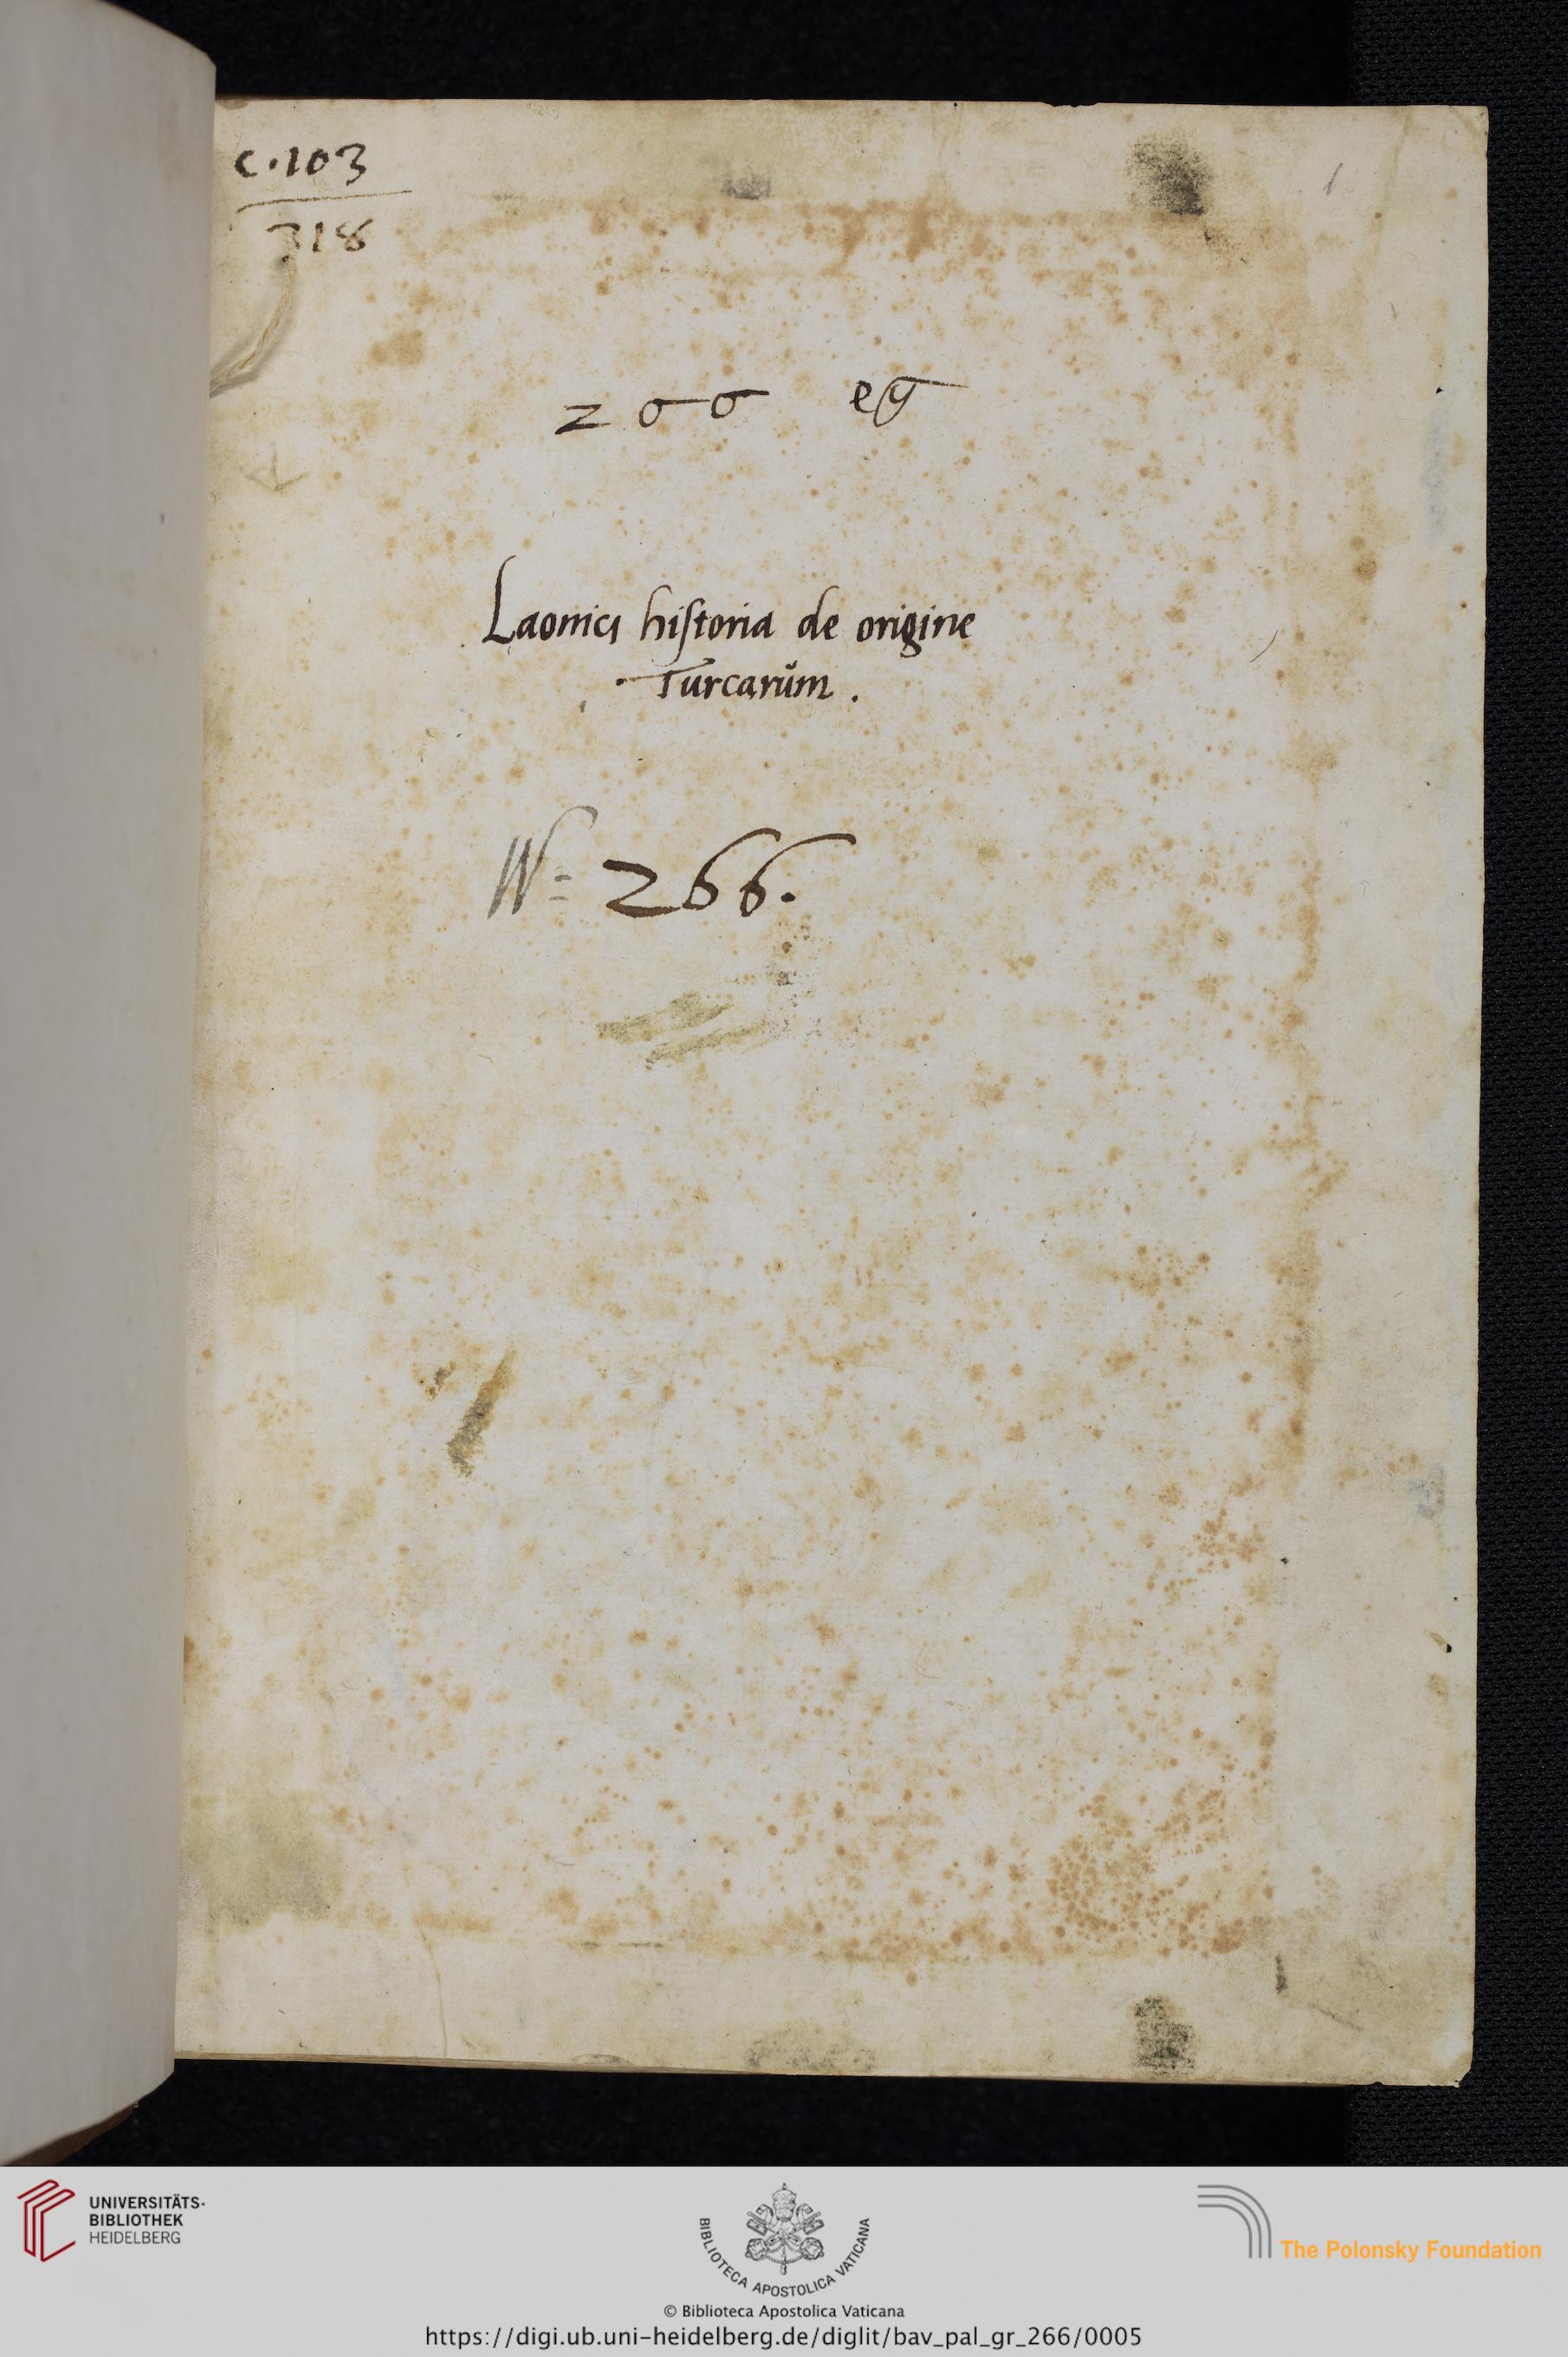 C·103
318
1
266
Laonici historia de origine
Turcarum.
N= 266.
UNIVERSITÄTS-
BIBLIOTHEK
HEIDELBERG
BIBLIOTECA APOSTOLICA VATICANA
The Polonsky Foundation
© Biblioteca Apostolica Vaticana
https://digi.ub.uni-heidelberg.de/diglit/bav_pal_gr_266/0005